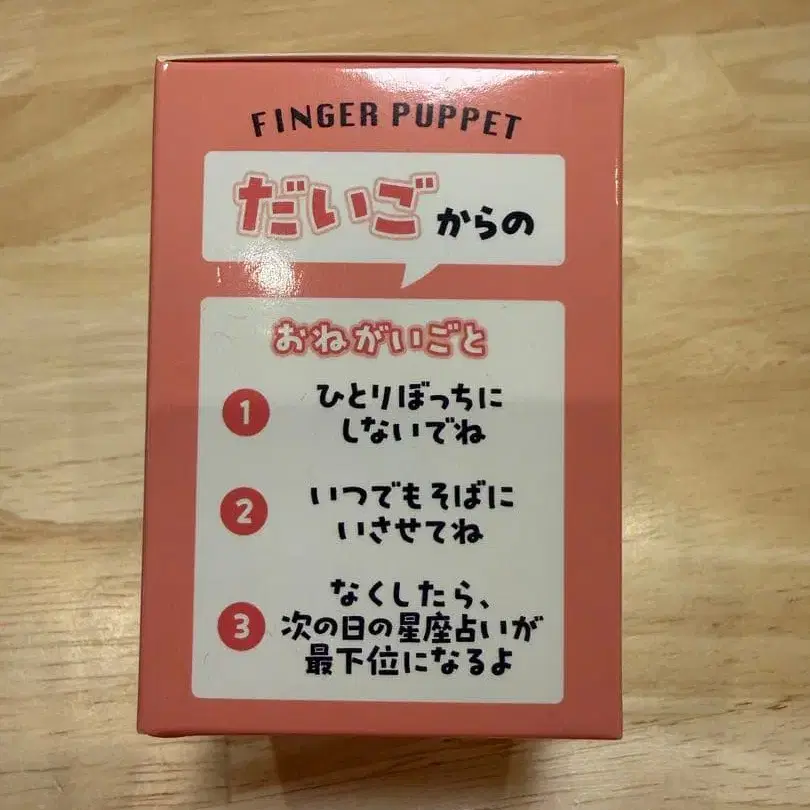 FINGER PUPPET
だいごからの
おねがいごと
1 ひとりぼっちに
しないでね
2 いつでもそばに
いさせてね
3 なくしたら、
次の日の星座占いが
最下位になるよ